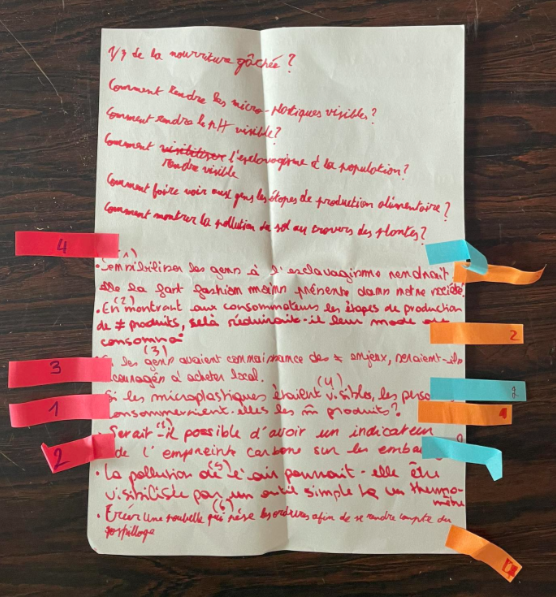 1/3 de la nourriture gâchée ?
Comment rendre les micro-plastiques visibles ?
Comment rendre le pH visible ?
Comment visibiliser l'esclavagisme à la population ?
rendre visible
Comment faire voir aux gens les étapes de production alimentaire ?
Comment montrer la pollution de sol au travers des plantes ?
4
(1)
• Sensibiliser les gens à l'esclavagisme rendrait-
elle la fast fashion moins présente dans notre société
(2)
• En montrant aux consommateurs les étapes de production
de ≠ produits, cela réduirait-il leur mode de
consommation
2
(3)
les gens avaient connaissance des ≠ enjeux, seraient-ils
encouragés à acheter local.
3
(4)
Si les microplastiques étaient visibles, les perso
consommeraient-elles les m̂ produits ?
2
1
1
Serait-il possible d'avoir un indicateur
de l'empreinte carbone sur les emba
2
(5)
• La pollution de l'air pourrait-elle être
visibilisée par un outil simple tq un thermo-
mètre
(6)
• Créer une poubelle qui pèse les ordures afin de se rendre compte du
gaspillage